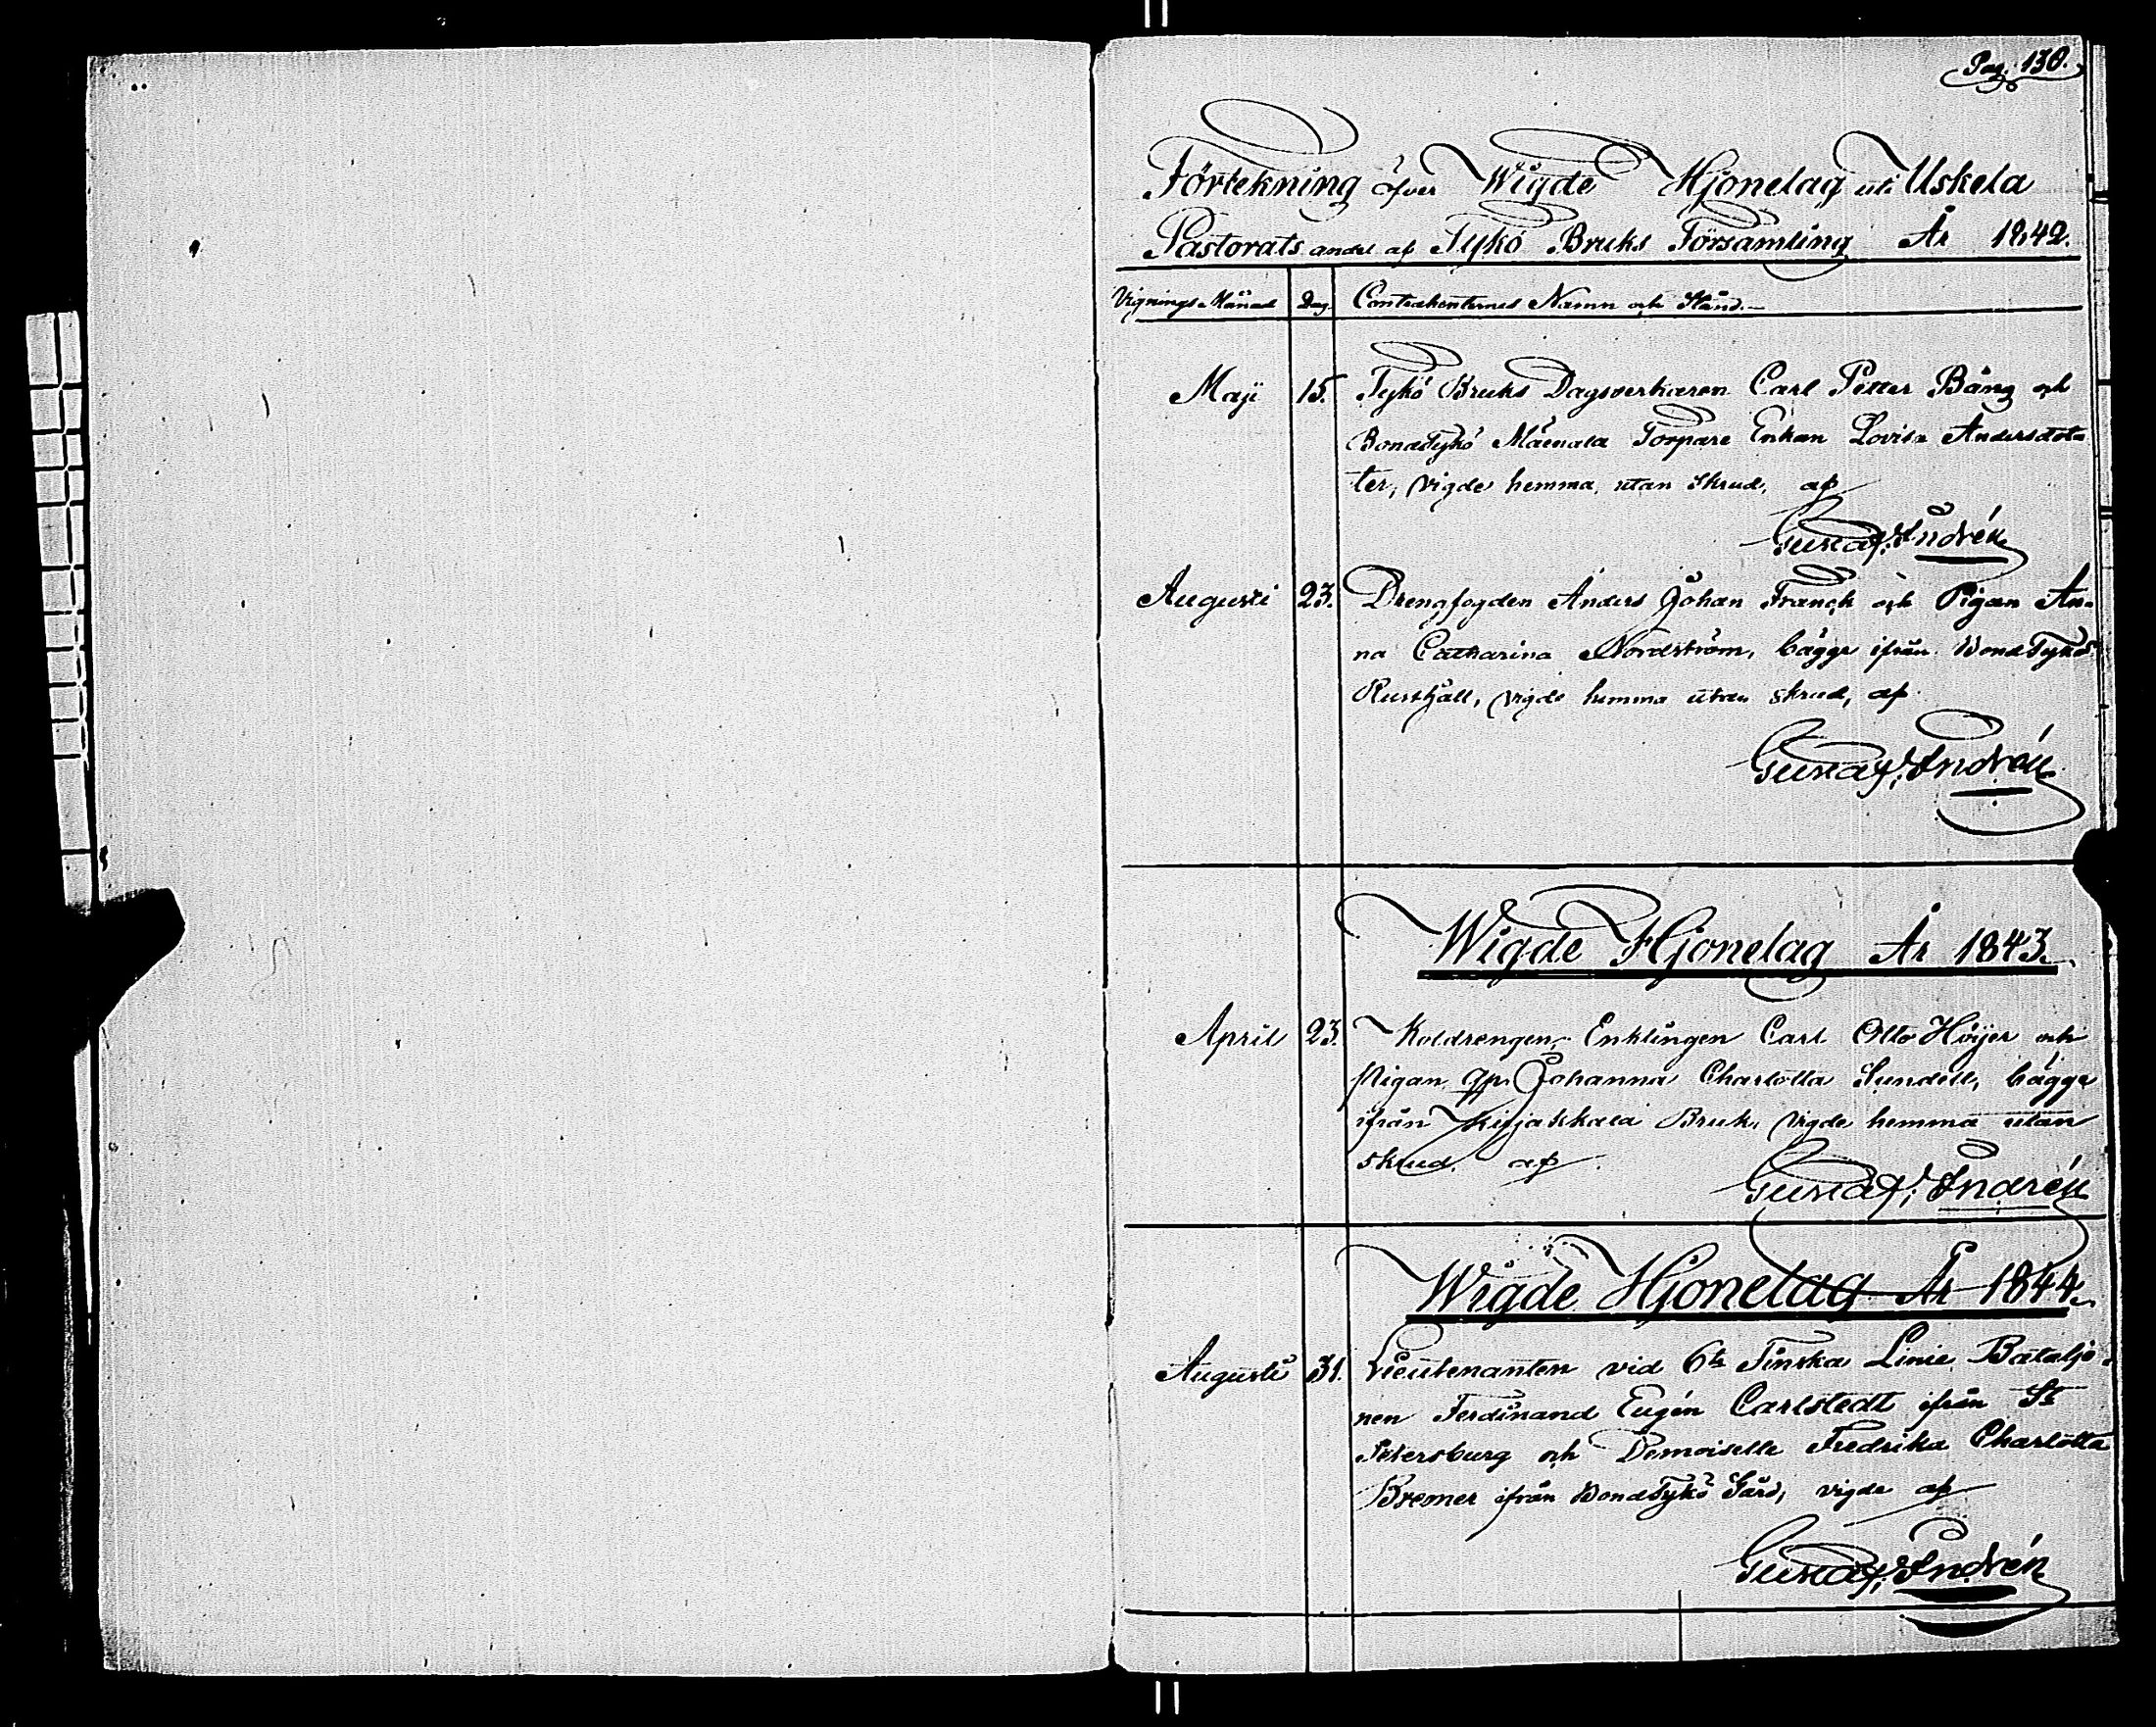 Pag. 130.
Förtekning öfver Wigde Hjonelag uti Uskela
Pastorats andel af Tykö Bruks Församling År 1842.
Vignings Månad Dag. Contrahenternes Namn och Stånd.
Maji 15. Tykö Bruks Dagsverkaren Carl Petter Bång och
BondTykö Torpare Enkan Lovisa Andersdot-
ter, vigde hemma, utan skrud, af
Gustaf Andrén
Augusti 23. Drengfogden Anders Johan Franck och Pigan An-
na Catharina Nordström, bägge ifrån BondTykö
Rusthåll, vigde hemma utan skrud, af
Gustaf Andrén
Wigde Hjonelag År 1843.
April 23. Koldrengen, Enklingen Carl Otto Höijer och
Pigan Johanna Charlotta Sundell, bägge
ifrån Kirjakkala Bruk, vigde hemma utan
skrud, af
Gustaf Andrén
Wigde Hjonelag År 1844.
Augusti 31. Lieutenanten vid 6te Finska Linie Bataljo-
nen Ferdinand Eugén Carlstedt ifrån St
Petersburg och Demoiselle Fredrika Charlotta
Bremer ifrån BondTykö Gård, vigde af
Gustaf Andrén